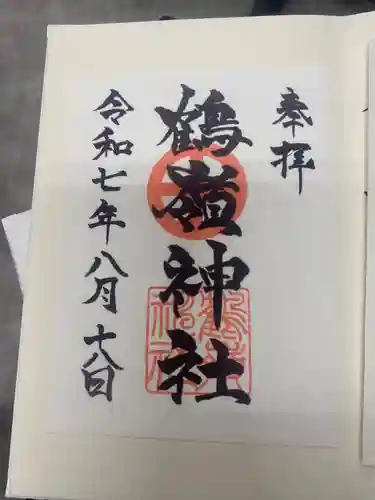 奉拝
鶴嶺神社
令和七年八月十八日